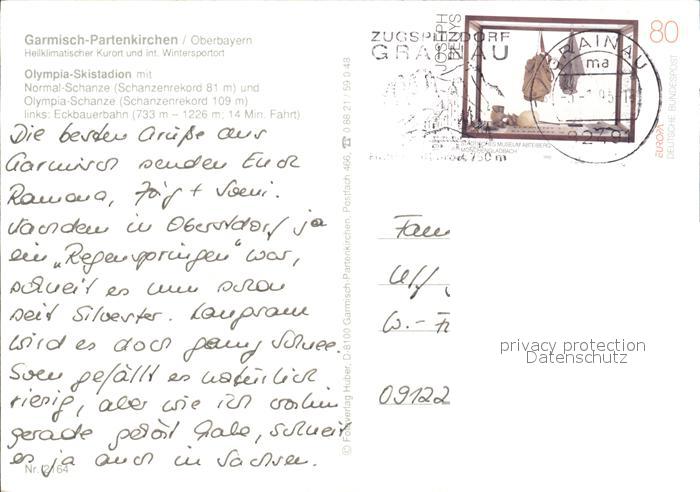 Garmisch-Partenkirchen / Oberbayern
Heilklimatischer Kurort und int. Wintersportort
Olympia-Skistadion mit
Normal-Schanze (Schanzenrekord 81 m) und
Olympia-Schanze (Schanzenrekord 109 m)
links: Eckbauerbahn (733 m – 1226 m; 14 Min. Fahrt)
Die besten Grüße aus
Garmisch senden Euch
Ramona, Jörg + Sveni.
Nachdem in Oberstdorf ja
ein „Regenspringen" war,
schneit es nun schon
seit Silvester. Langsam
wird es doch ganz Schnee.
Sven gefällt es natürlich
riesig, aber wie ich vorhin
gerade gehört habe, schneit
es ja auch in Sachsen.
Nr. 2164
© Fotoverlag Huber, D-8100 Garmisch-Partenkirchen, Postfach 466, ☎ 0 88 21 / 5 90 48
ZUGSPITZDORF
GRAINAU
750 m
JOSEPH
BEUYS
STÄDTISCHES MUSEUM ABTEIBERG
MÖNCHENGLADBACH
80
DEUTSCHE BUNDESPOST
EUROPA
GRAINAU
ma
Fam
W.-
09122
privacy protection
Datenschutz